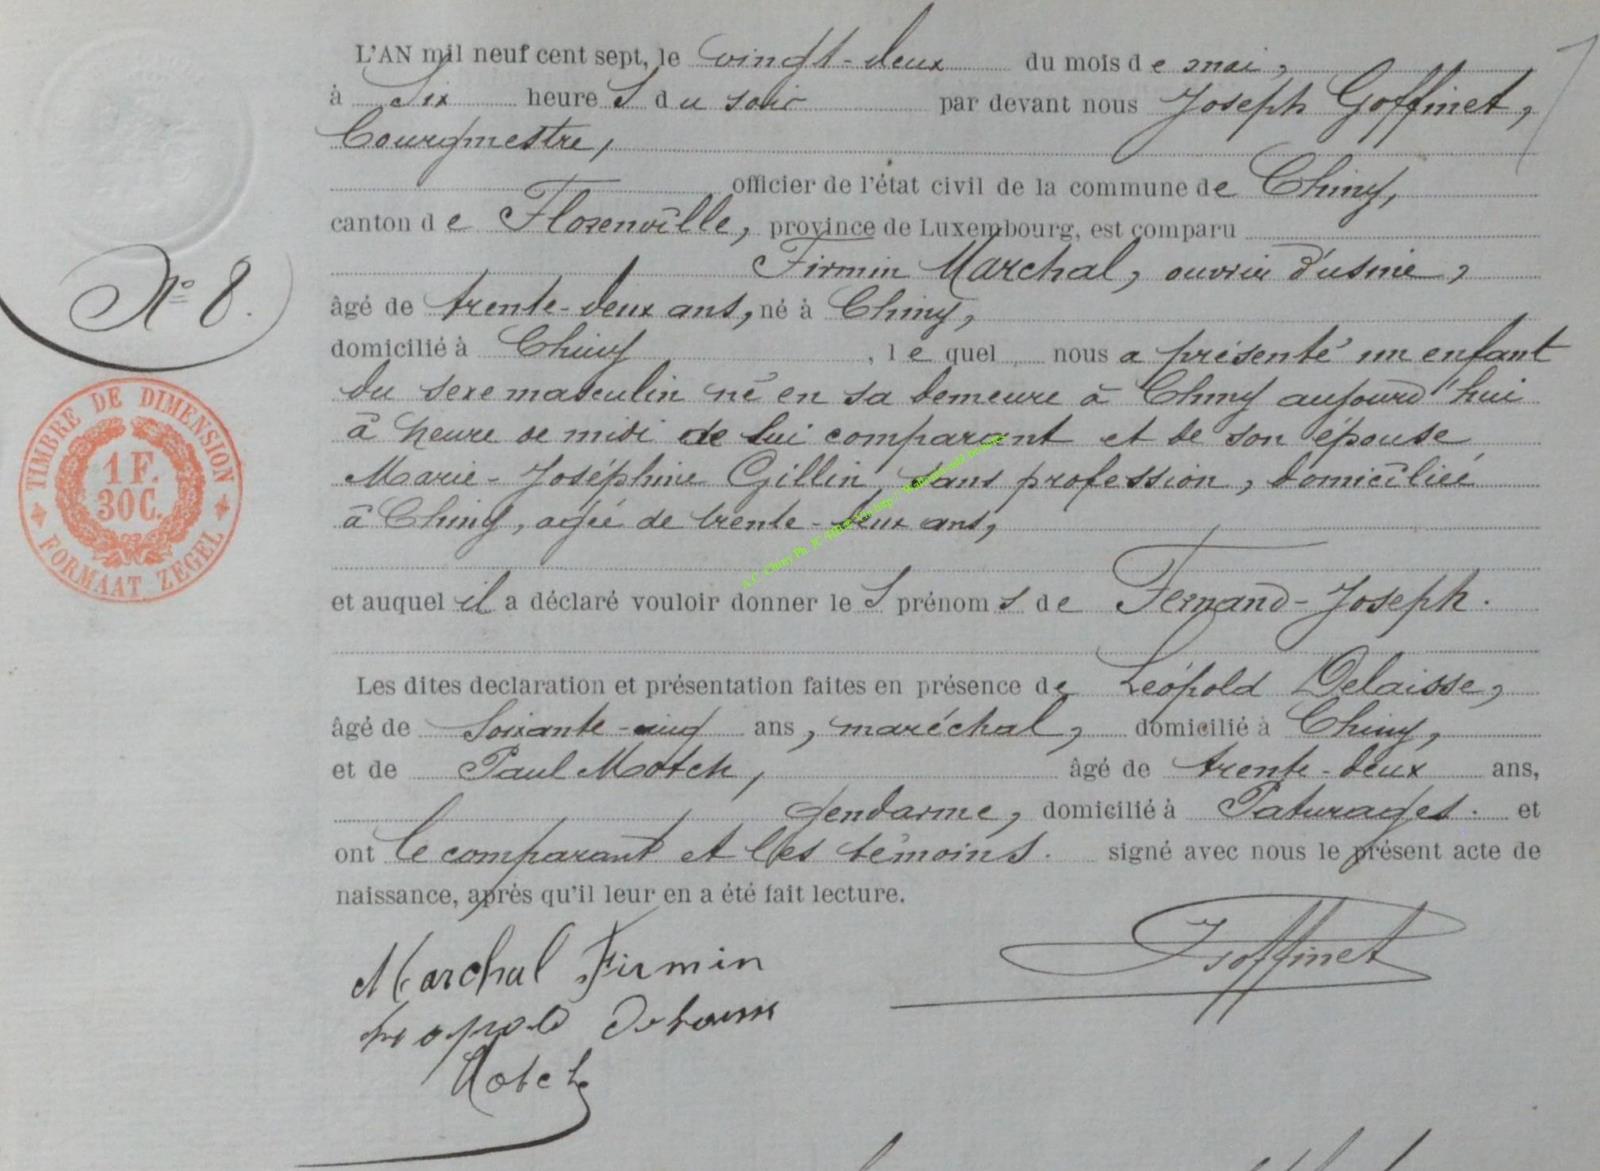 L'AN mil neuf cent sept, le vingt-deux du mois de mai,
à six heureS du soir par devant nous Joseph Goffinet,
bourgmestre,
officier de l'état civil de la commune de Chiny,
canton de Florenville, province de Luxembourg, est comparu
Firmin Marchal, ouvrier d'usine,
âgé de trente-deux ans, né à Chiny,
domicilié à Chiny, lequel nous a présenté un enfant
du sexe masculin né en sa demeure à Chiny aujourd'hui
à heure de midi de lui comparant et de son épouse
Marie-Joséphine Gillin, sans profession, domiciliée
à Chiny, agée de trente-deux ans,
et auquel il a déclaré vouloir donner les prénoms de Fernand-Joseph.
Les dites declaration et présentation faites en présence de Léopold Delaisse,
âgé de soixante-cinq ans, maréchal, domicilié à Chiny,
et de Paul Motch, âgé de trente-deux ans,
gendarme, domicilié à Paturages. et
ont le comparant et les témoins. signé avec nous le présent acte de
naissance, après qu'il leur en a été fait lecture.
Marchal Firmin
JGoffinet
Motch
N° 8.
TIMBRE DE DIMENSION
1 F.
30 C.
FORMAAT ZEGEL